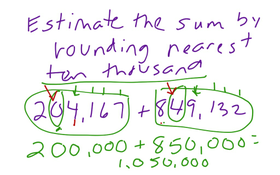 Estimate the sum by
rounding nearest
ten thousand
204,167 + 849,132
200,000 + 850,000 =
1,050,000